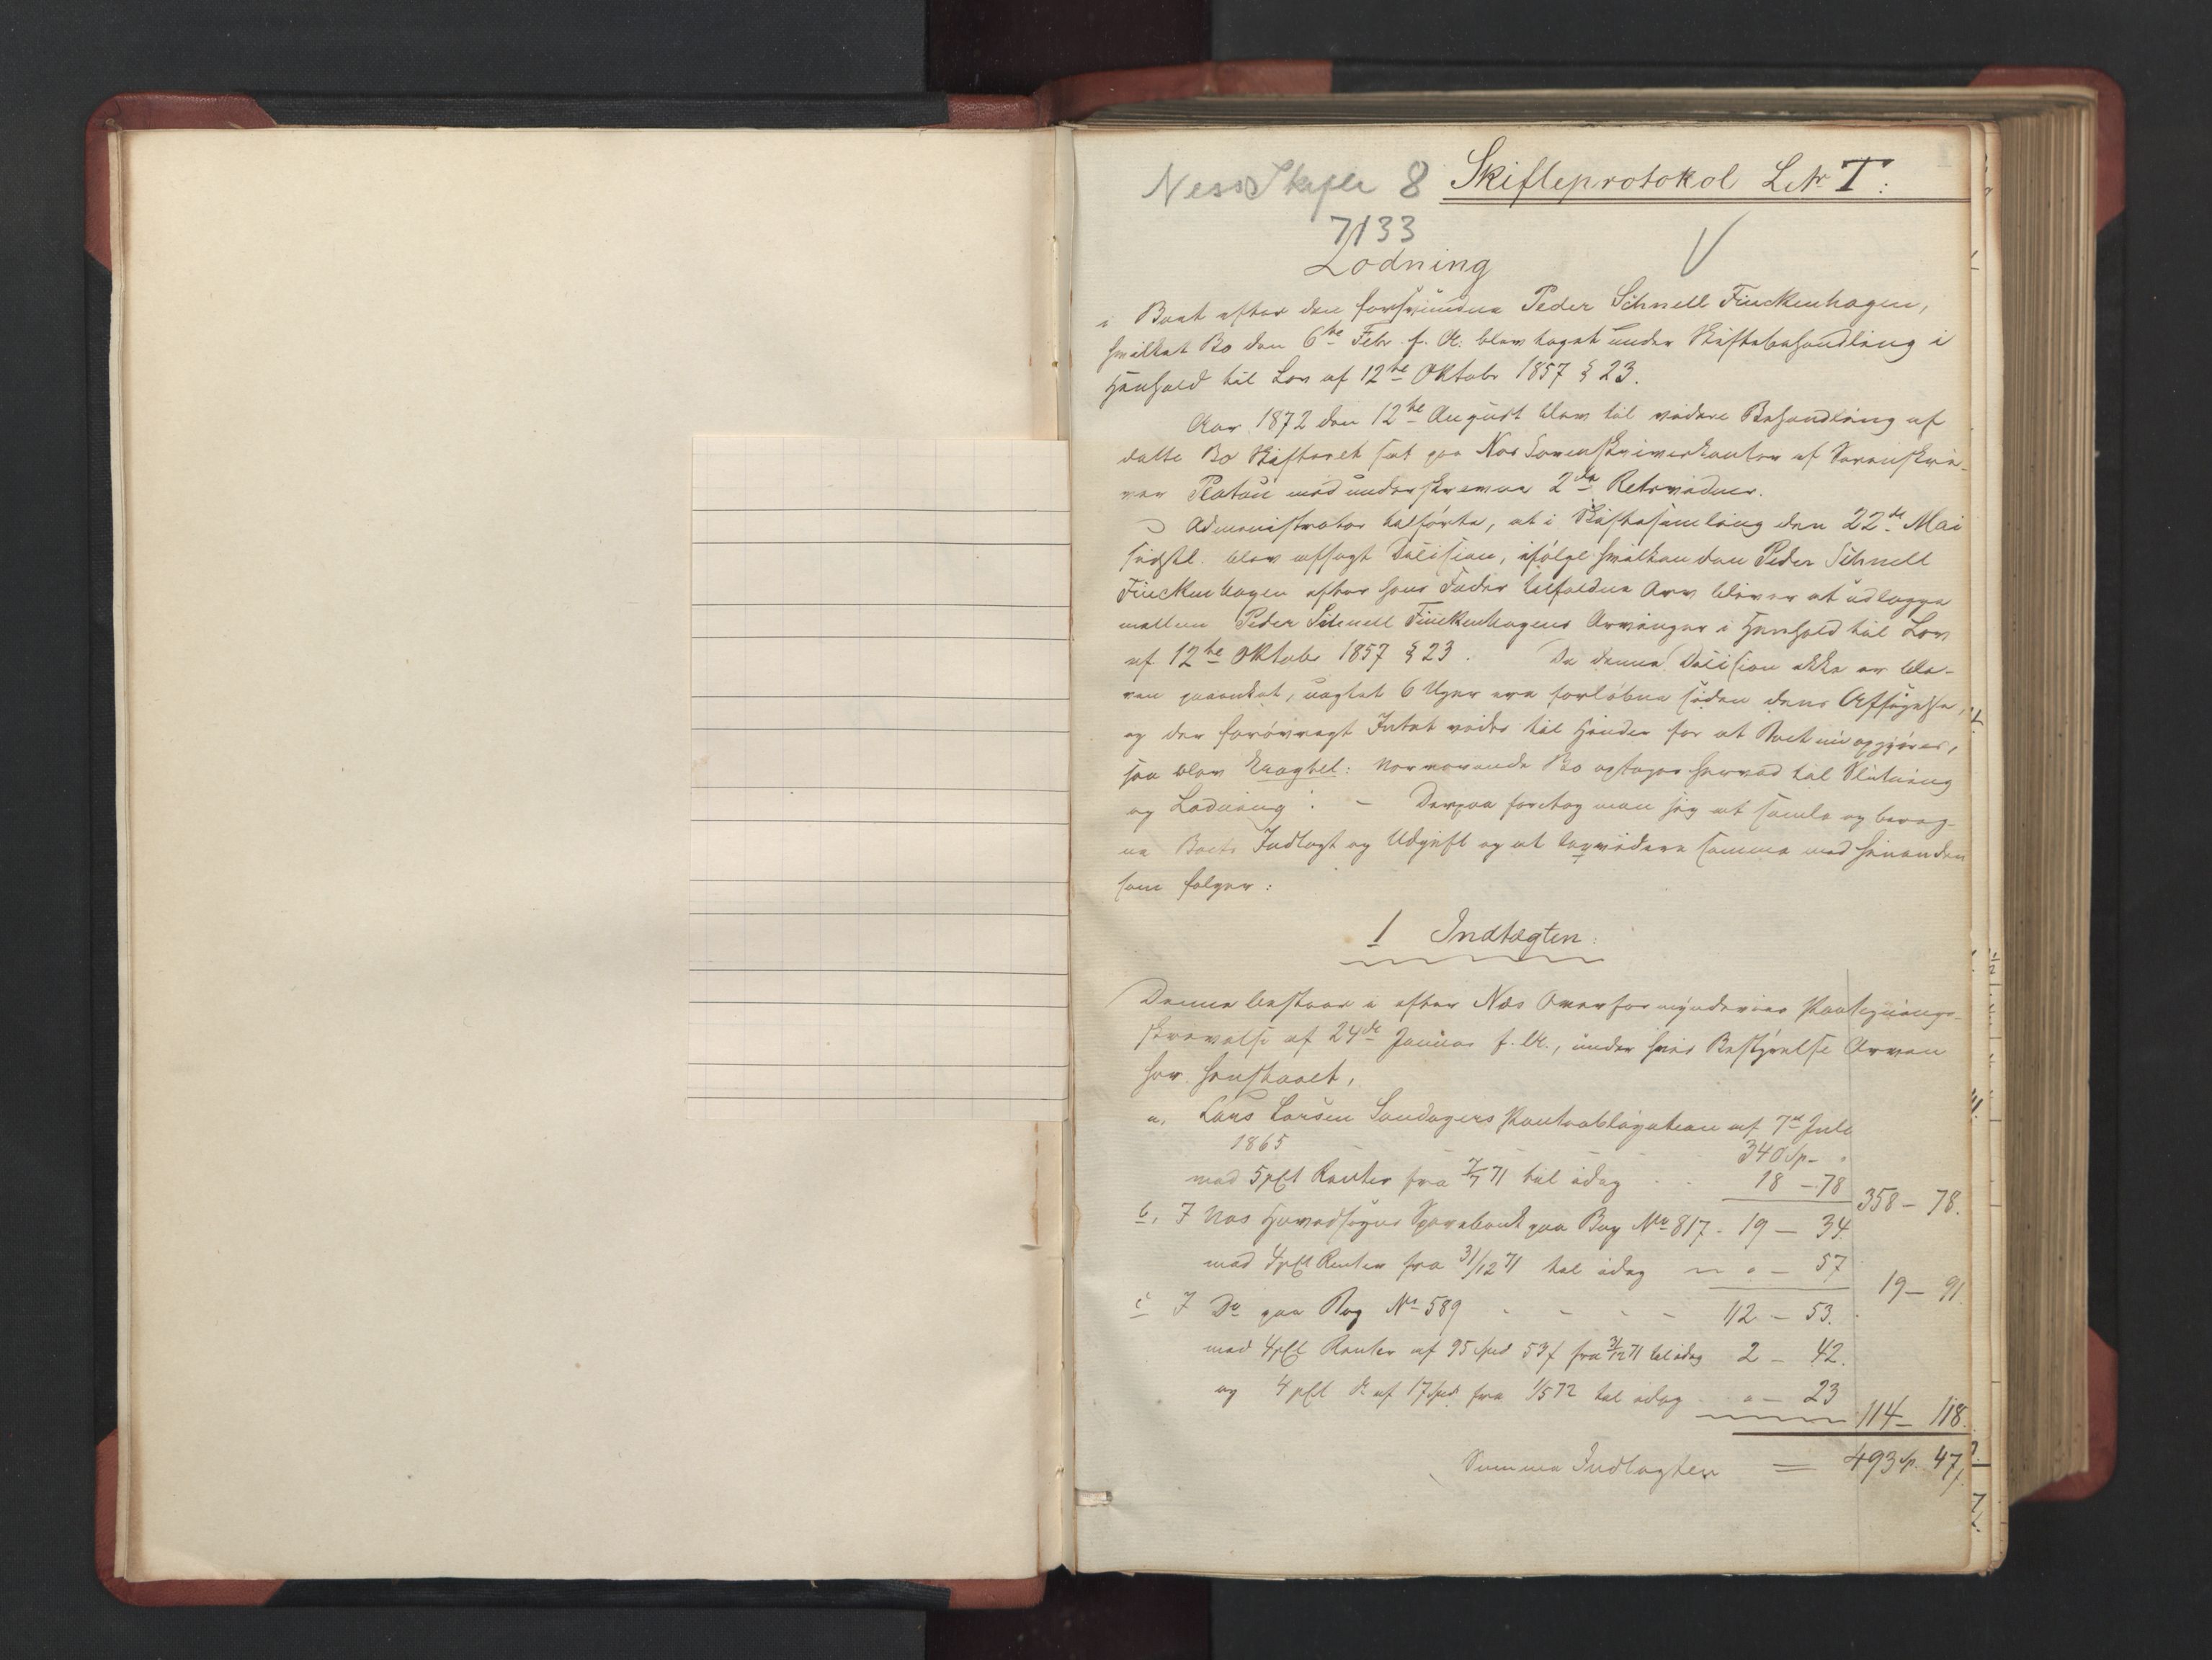 Ness Skifter 8 Skifteprotokol Litr T:
7133 V
Lodning
i Boet efter den forsvundne Peder Schnell Finckenhagen,
hvilket Bo den 6te Febr. f. A. blev taget under Skiftebehandling i
Henhold til Lov af 12te Oktobr 1857 § 23.
Aar 1872 den 12te August blev til videre Behandling af
dette Bo Skifteret sat paa Nes Sorenskriverkontor af Sorenskri-
ver Platou med underskrevne 2de Retsvidner.
Administrator tilførte, at i Skiftesamling den 22de Mai
sidstl. blev afsagt Decision, ifølge hvilken den Peder Schnell
Finckenhagen efter hans Fader tilfaldne Arv bliver at udlægge
mellem Peder Schnell Finckenhagens Arvinger i Henhold til Lov
af 12te Oktobr 1857 § 23. Da denne Decision ikke er ble-
ven paaanket, uagtet 6 Uger ere forløbne siden dens Afsigelse,
og der forøvrigt Intet vides til Hinder for at Boet nu opgjøres,
saa blev Eragtet: Nærværende Bo optages herved til Slutning
og Lodning. – Derpaa foretog man sig at samle og bereg-
ne Boets Indtægt og Udgift og at samme med hinanden
som følger:
1 Indtægten:
Denne bestaar i efter Nes Overformynderies
skrivelse af 24de Januar f. A., under hvis Bestyrelse Arven
har henstaaet,
a, Lars Larsen Sandagers Pantobligation af 7de Juli
1865 340 Sp – "
med 5 pCt Renter fra 7/7 71 til idag 18 – 78 358 – 78.
b, I Nes Hovedsogns Sparebank paa Bog No 817 – 19 – 34
med 4 pCt Renter fra 31/12 71 til idag " – 57 19 – 91.
c I Do paa Bog No 589 - - - - 112 – 53.
med 4 pCt Renter af 95 Spd 53 s fra 31/12 71 til idag 2 – 42.
og 4 pCt do af 17 Spd fra 1/5 72 til idag " – 23 114 – 118.
Summa Indtægten = 493 Sp 47 s.